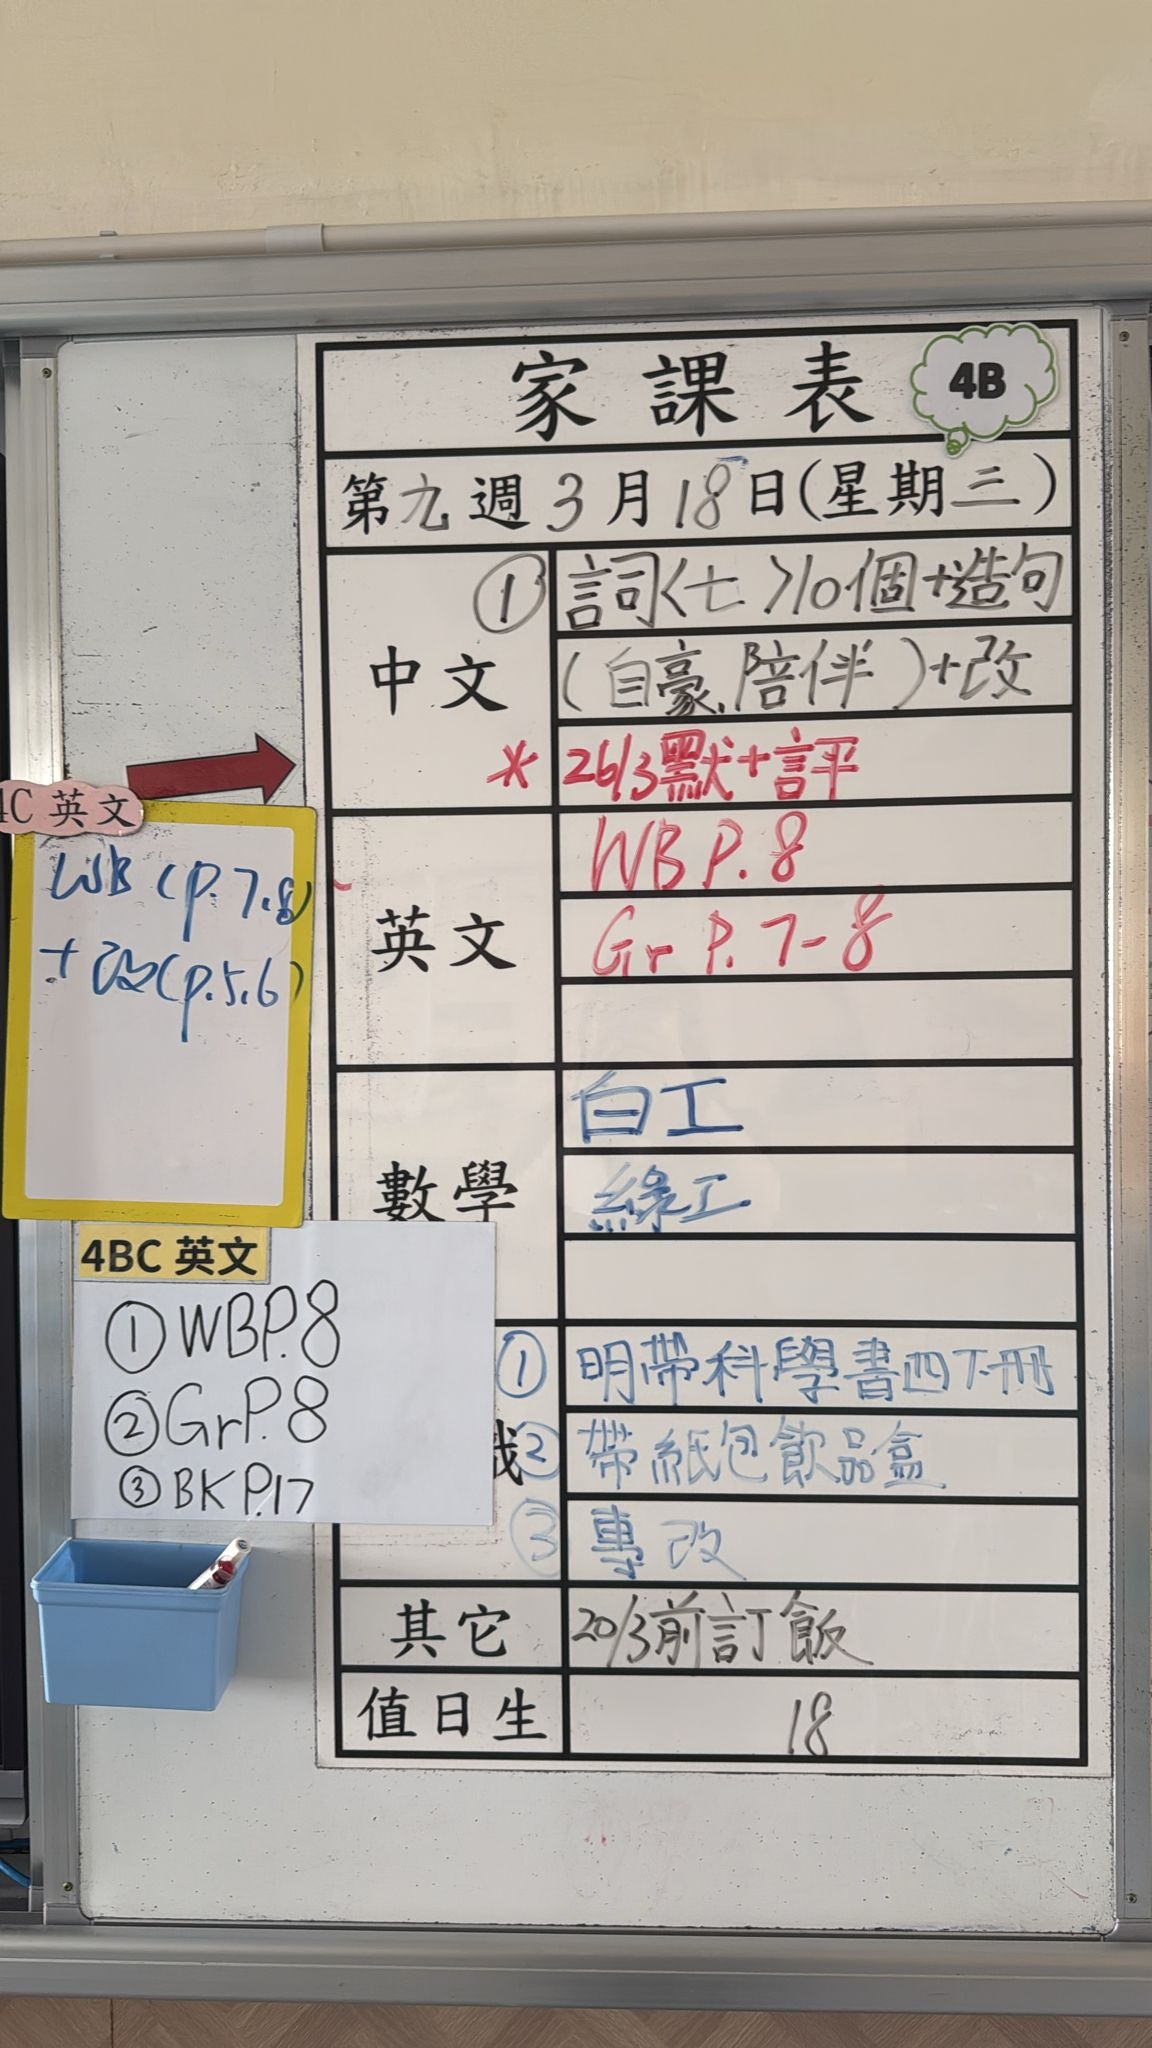 家課表
4B
第九週3月18日(星期三)
中文
① 詞<七>10個+造句
(自豪、陪伴)+改
* 26/3默+評
英文
WB P.8
Gr P.7-8
數學
白工
綠工
① 明帶科學書四下冊
② 帶紙包飲品盒
③ 專改
其它
20/3前訂飯
值日生
18
4C 英文
WB (p.7.8)
+改(p.5.6)
4BC 英文
① WBP.8
② GrP.8
③ BK P.17